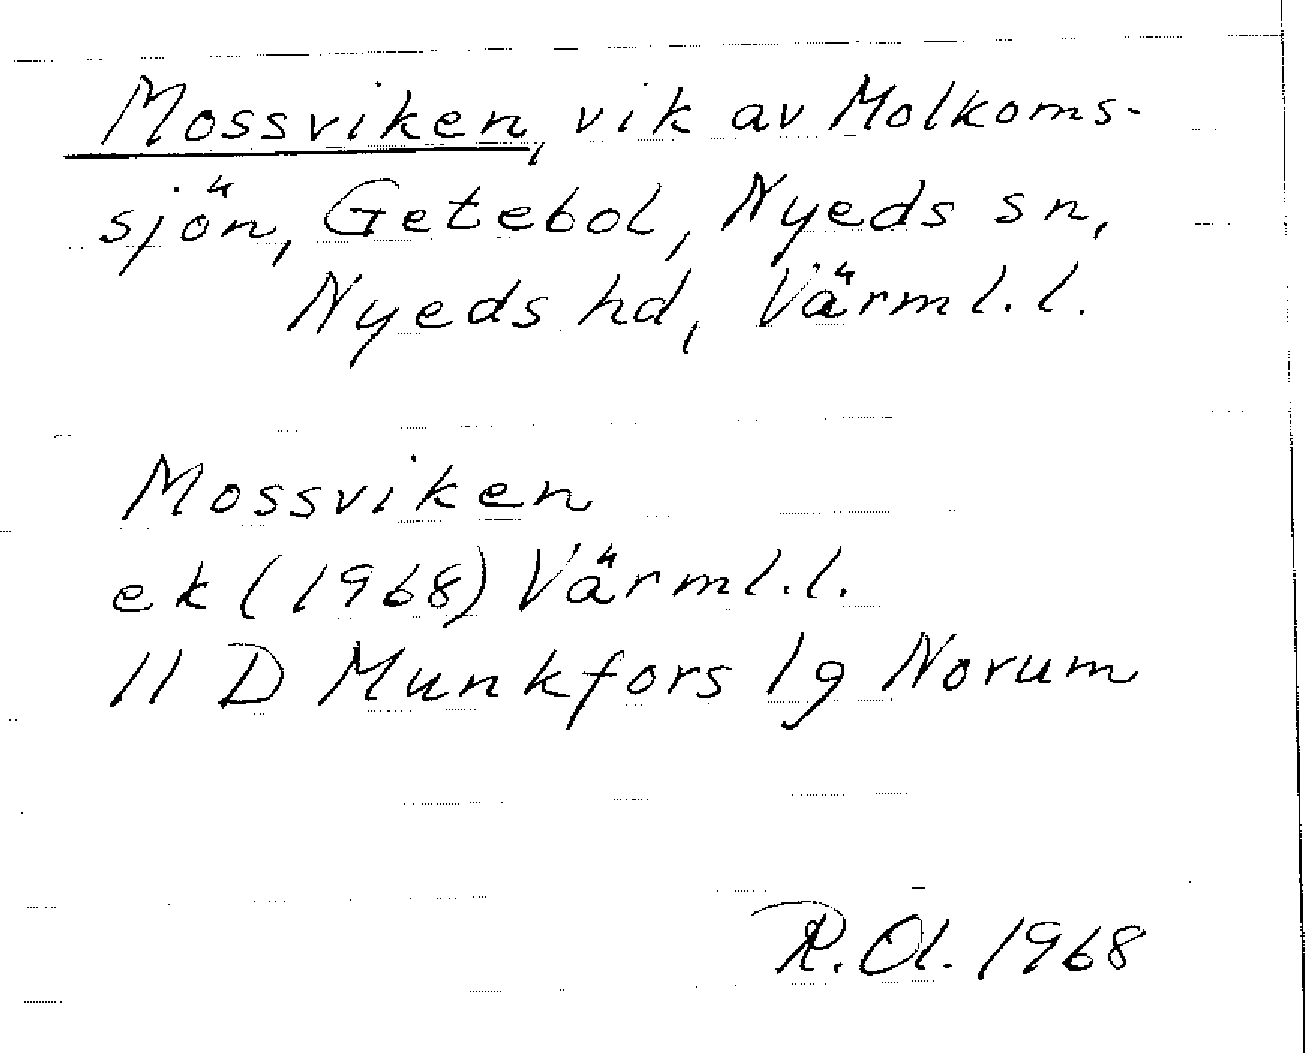 Mossviken, vik av Molkoms-
sjön, Getebol, Nyeds sn,
Nyeds hd, Värml. l.
Mossviken
ek (1968) Värml. l.
11 D Munkfors 1g Norum
R. Ol. 1968